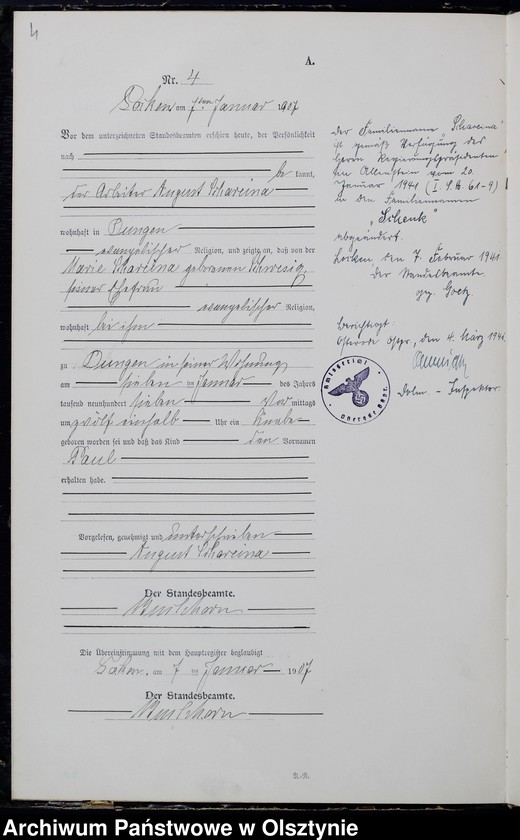 4
A.
Nr. 4
Locken am 7ten Januar 1907
Vor dem unterzeichneten Standesbeamten erschien heute, der Persönlichkeit
nach
be kannt,
der Arbeiter August Schareina
wohnhaft in Dungen
evangelischer Religion, und zeigte an, daß von der
Marie Schareina geborenen
seiner Ehefrau
evangelischer Religion,
wohnhaft bei ihm
zu Dungen in seiner Wohnung
am sieben ten Januar des Jahres
tausend neunhundert sieben Vor mittags
um zwölf einhalb Uhr ein Knabe
geboren worden sei und daß das Kind den Vornamen
Paul
erhalten habe.
Vorgelesen, genehmigt und unterschrieben
August Schareina
Der Standesbeamte.
Die Übereinstimmung mit dem Hauptregister beglaubigt
Locken, am 7 ten Januar 1907
Der Standesbeamte.
Der Familienname "Schareina"
ist gemäß Verfügung des
Herrn Regierungspräsidenten
in Allenstein vom 20.
Januar 1941
in den Familiennamen
"Schenk"
abgeändert.
Locken, den 7. Februar 1941
Der Standesbeamte
gez. Goetz.
Berichtigt:
Osterode Ostpr., den 4. März 1941
Amtsgericht
Osterode Ostpr.
- Inspektor
A.-R.
Archiwum Państwowe w Olsztynie